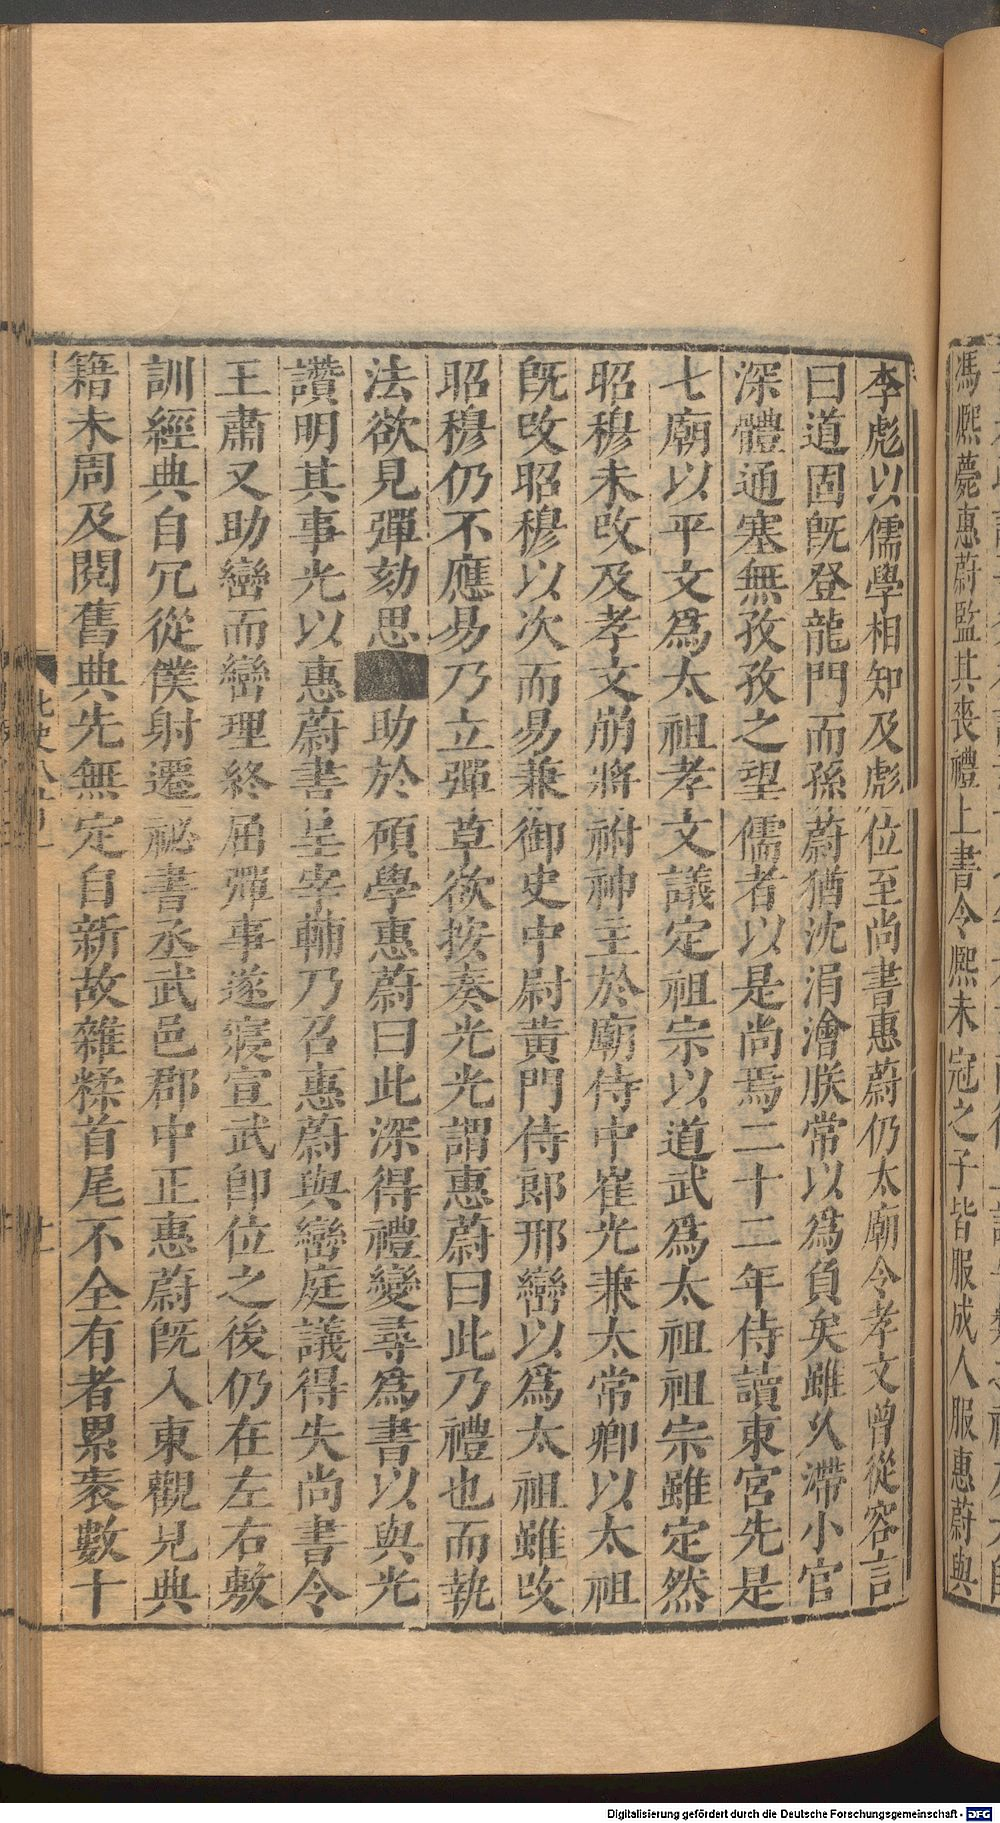 馮熈薨惠蔚監其喪禮上書令熈未冠之子皆服成人服惠蔚與
李彪以儒學相知及彪位至尚書惠蔚仍太廟令孝文曾從容言
曰道固旣登龍門而孫蔚猶沈涓澮朕常以爲負矣雖乆滯小官
深體通塞無孜孜之望儒者以是尚焉二十二年侍讀東宮先是
七廟以平文爲太祖孝文議定祖宗以道武爲太祖祖宗雖定然
昭穆未改及孝文崩將祔神主於廟侍中崔光兼太常卿以太祖
旣改昭穆以次而易兼御史中尉黃門侍郎邢巒以爲太祖雖改
昭穆仍不應易乃立彈草欲按奏光光謂惠蔚曰此乃禮也而執
法欲見彈劾思助於碩學惠蔚曰此深得禮變尋爲書以與光
讚明其事光以惠蔚書呈宰輔乃召惠蔚與巒庭議得失尚書令
王肅又助巒而巒理終屈彈事遂寢宣武卽位之後仍在左右敷
訓經典自冗從僕射遷祕書丞武邑郡中正惠蔚旣入東觀見典
籍未周及閱舊典先無定目新故雜糅首尾不全有者累袠數十
Digitalisierung gefördert durch die Deutsche Forschungsgemeinschaft - DFG